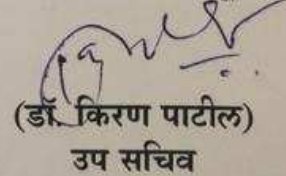 (डॉ. किरण पाटील)
उप सचिव